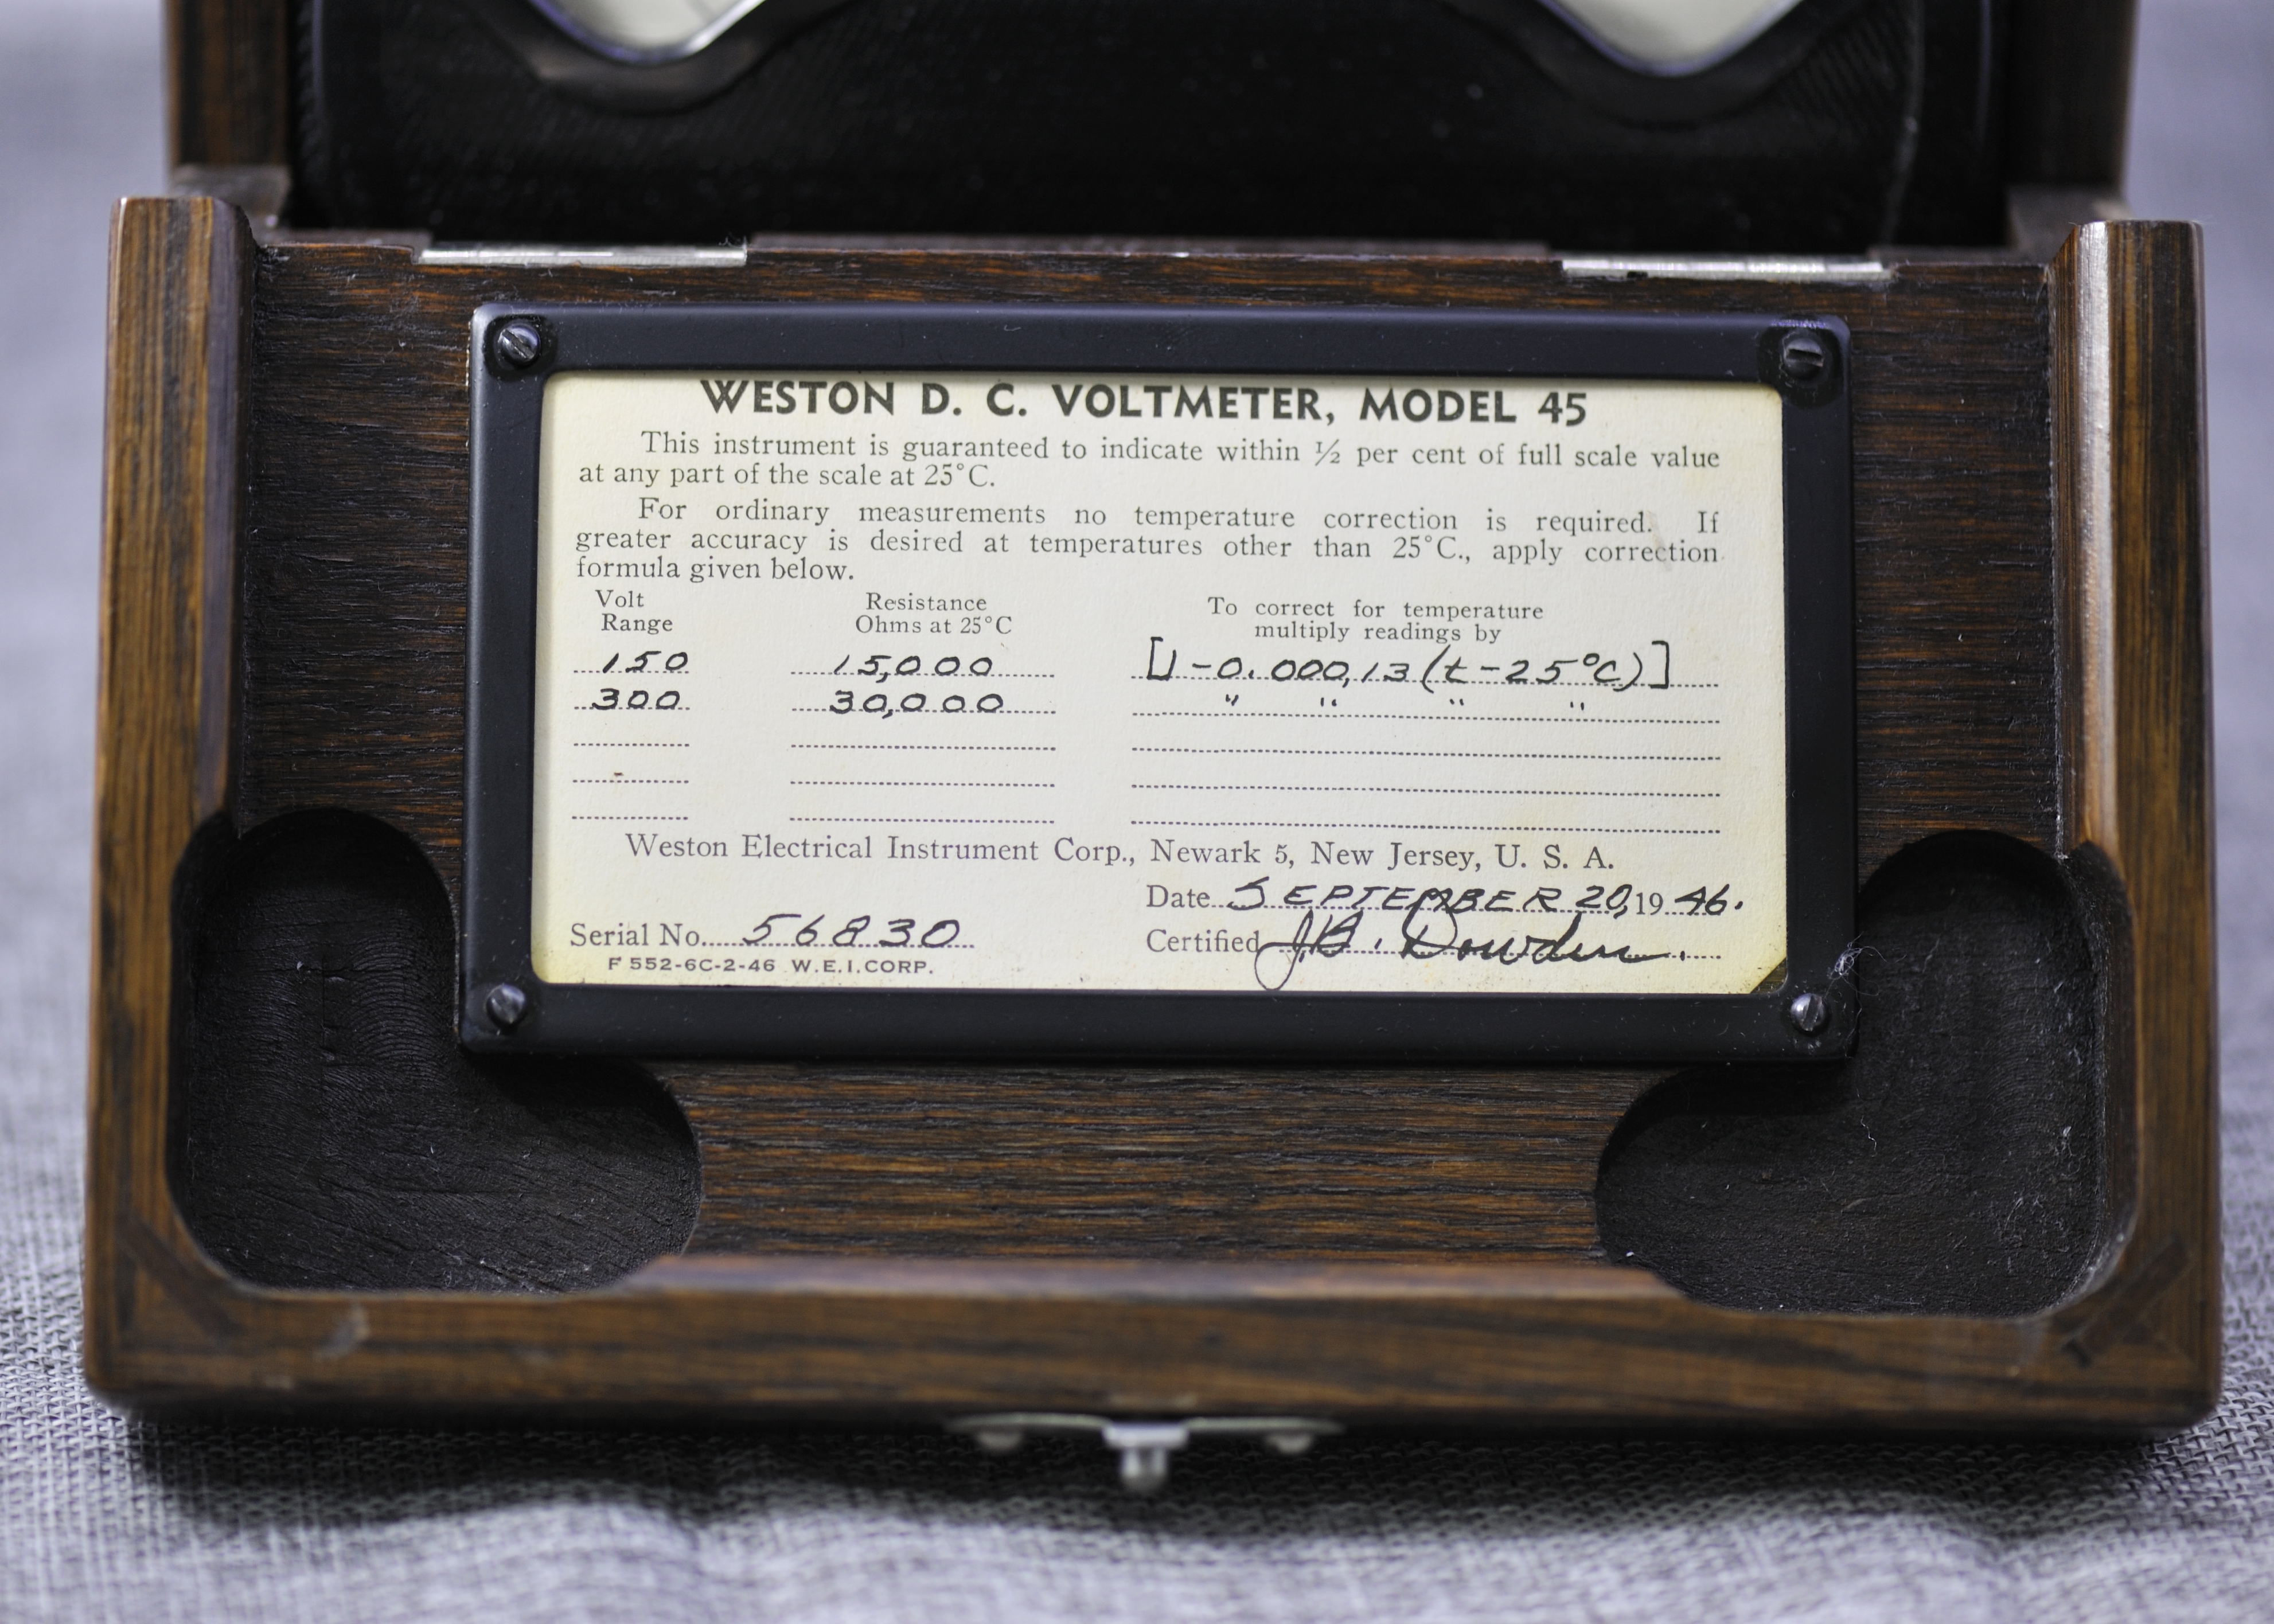 WESTON D. C. VOLTMETER, MODEL 45
This instrument is guaranteed to indicate within ½ per cent of full scale value
at any part of the scale at 25°C.
For ordinary measurements no temperature correction is required. If
greater accuracy is desired at temperatures other than 25°C., apply correction
formula given below.
Volt Resistance To correct for temperature
Range Ohms at 25°C multiply readings by
150 15,000 [1-0.000,13(t-25°C)]
300 30,000 " " " "
Weston Electrical Instrument Corp., Newark 5, New Jersey, U. S. A.
Date SEPTEMBER 20, 1946.
Serial No. 56830 Certified J.B. Dowden.
F 552-6C-2-46 W.E.I.CORP.